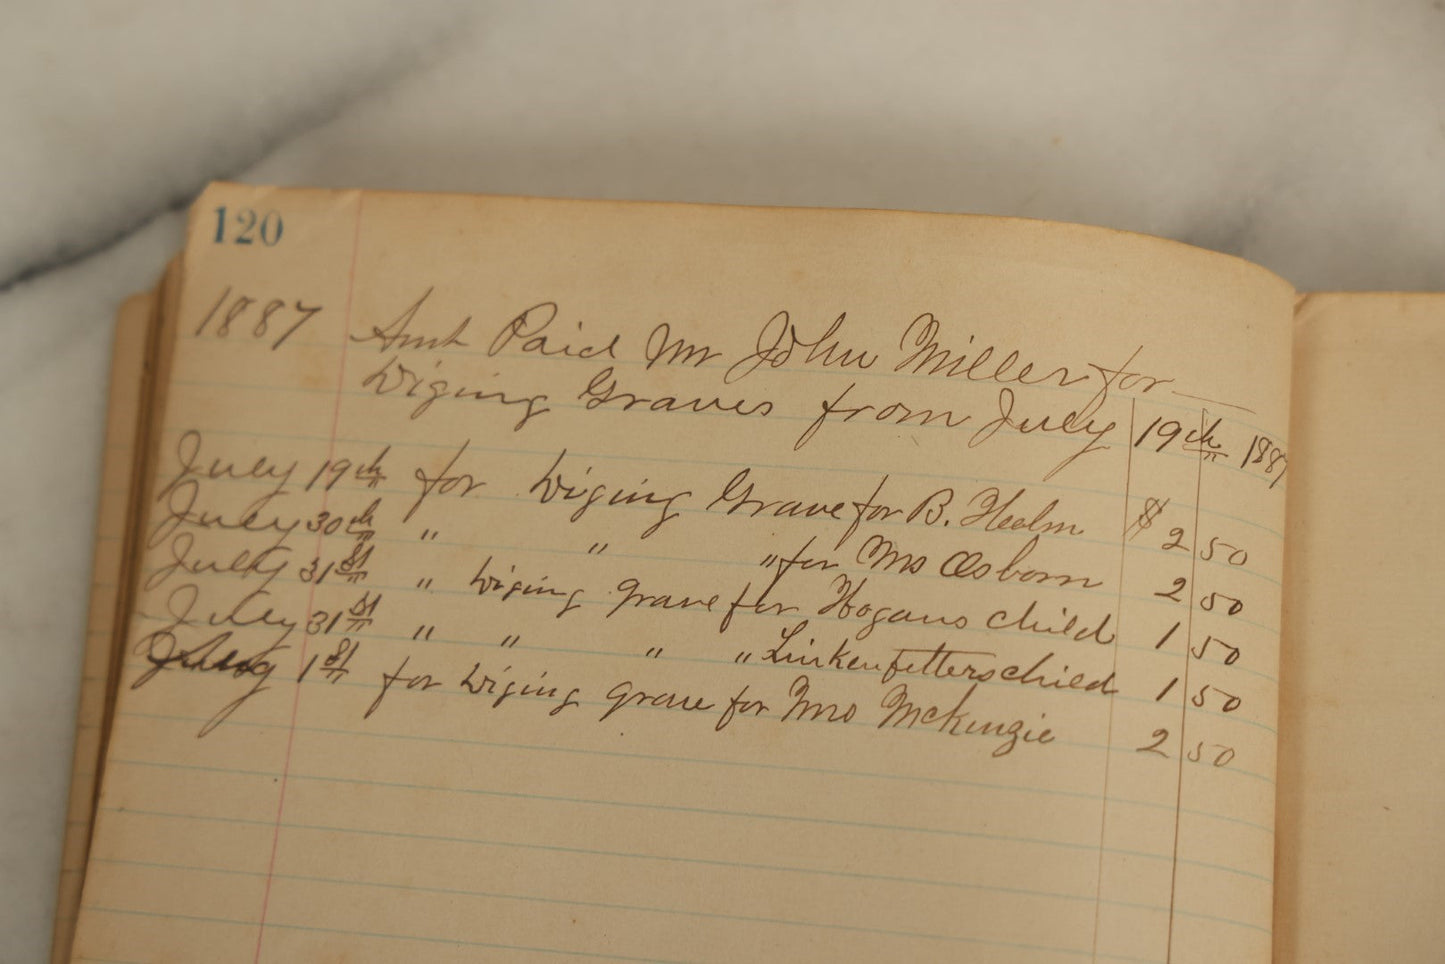 120
1887 Amt Paid Mr John Miller for
Diging Graves from July 19th 1887
July 19th for Diging Grave for B. Heelm $ 2 50
July 30th " " " for Mrs Osborn 2 50
July 31st " Diging grave for Hogans child 1 50
July 31st " " " " Linkenfetters child 1 50
1st for Diging grave for Mrs McKinzie 2 50